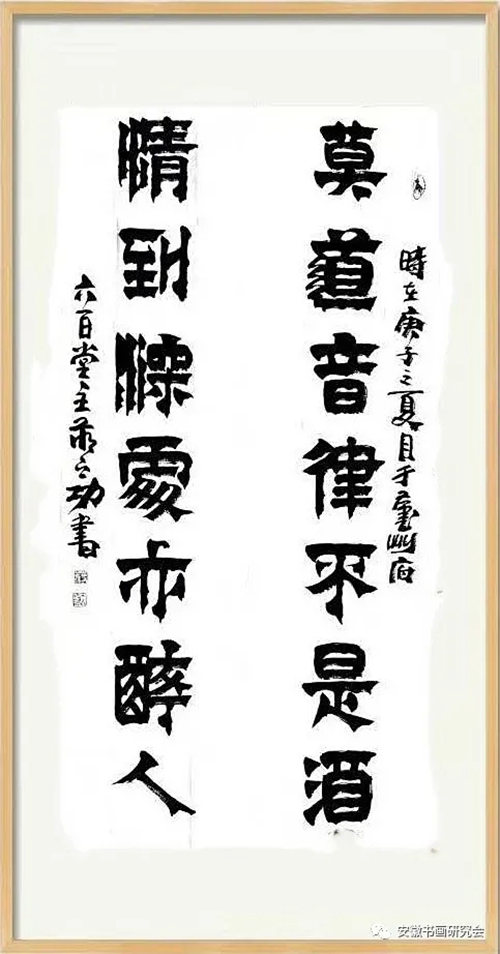 時在庚子之夏月于廬州府
莫道音律不是酒
情到深處亦醉人
六百堂主功書
安徽书画研究会